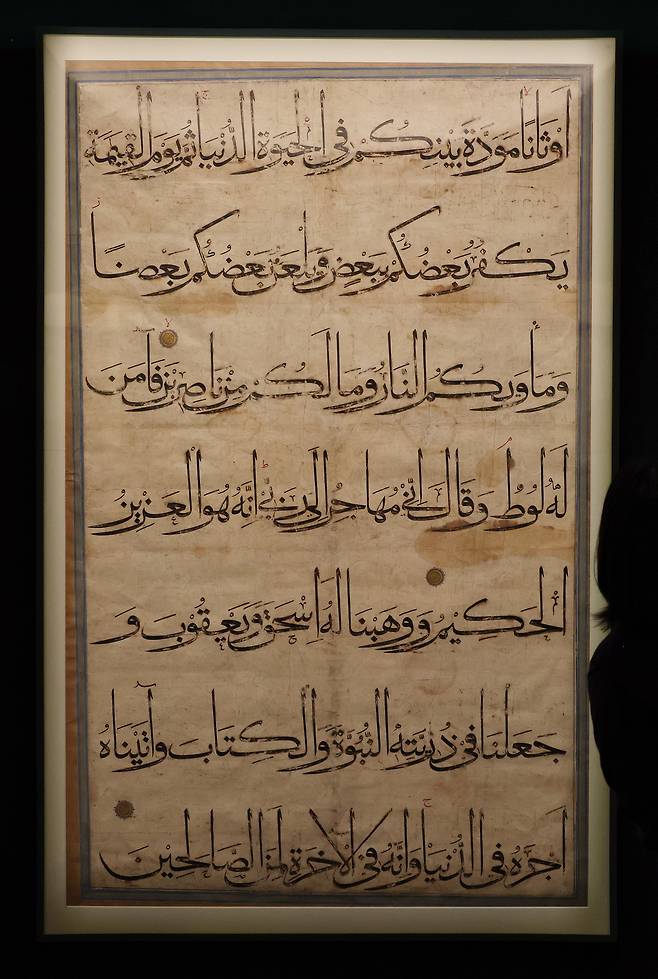 أَوْثَانًا مَوَدَّةَ بَيْنِكُمْ فِي الْحَيٰوةِ الدُّنْيَا ثُمَّ يَوْمَ الْقِيٰمَةِ
يَكْفُرُ بَعْضُكُمْ بِبَعْضٍ وَيَلْعَنُ بَعْضُكُمْ بَعْضًا
وَمَأْوٰىكُمُ النَّارُ وَمَا لَكُمْ مِنْ نَاصِرِينَ فَآمَنَ
لَهُ لُوطٌ وَقَالَ إِنِّي مُهَاجِرٌ إِلَى رَبِّي إِنَّهُ هُوَ الْعَزِيزُ
الْحَكِيمُ وَوَهَبْنَا لَهُ إِسْحٰقَ وَيَعْقُوبَ وَ
جَعَلْنَا فِي ذُرِّيَّتِهِ النُّبُوَّةَ وَالْكِتَابَ وَآتَيْنَاهُ
أَجْرَهُ فِي الدُّنْيَا وَإِنَّهُ فِي الْآخِرَةِ لَمِنَ الصَّالِحِينَ